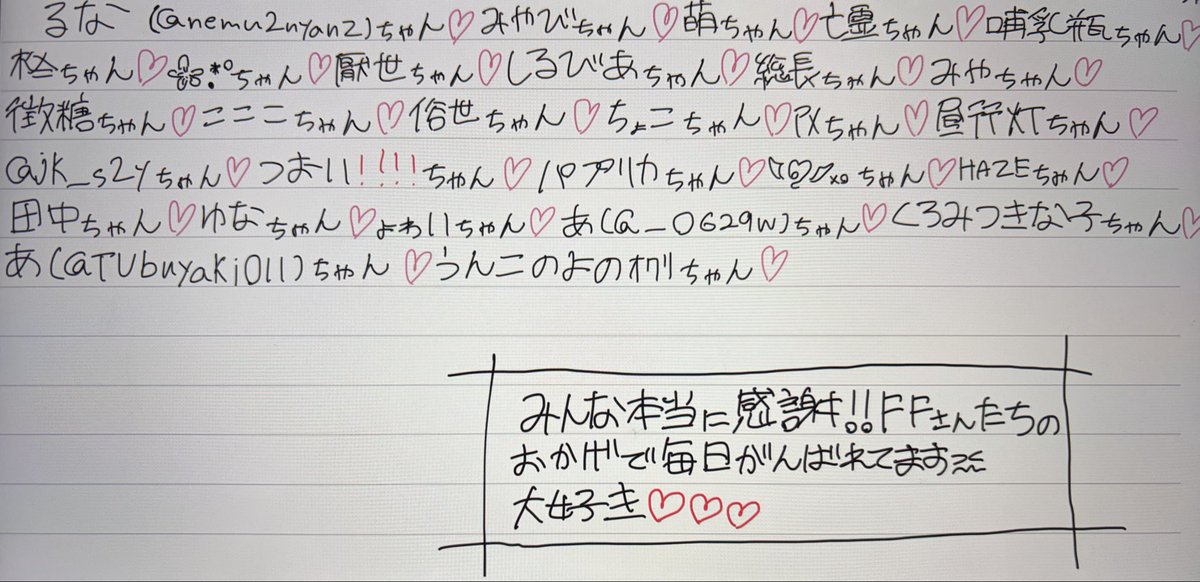 るな (@nemu2nyan2)ちゃん♡みやびちゃん♡萌ちゃん♡亡霊ちゃん♡哺乳瓶ちゃん♡
柩ちゃん♡ ちゃん♡厭世ちゃん♡しるびあちゃん♡総長ちゃん♡みやちゃん♡
徴糖ちゃん♡こここちゃん♡俗世ちゃん♡ちょこちゃん♡ ちゃん♡昼行灯ちゃん♡
@jk_s2yちゃん♡つおい!!!!ちゃん♡パプリカちゃん♡ ちゃん♡HAZEちゃん♡
田中ちゃん♡ゆなちゃん♡よわいちゃん♡あ(@_0629w)ちゃん♡くろみつきなこ子ちゃん♡
あ(@TUbuyaki011)ちゃん♡うんこのよのオワリちゃん♡
みんな本当に感謝!!FFさんたちの
おかげで毎日がんばれてます
大好き♡♡♡